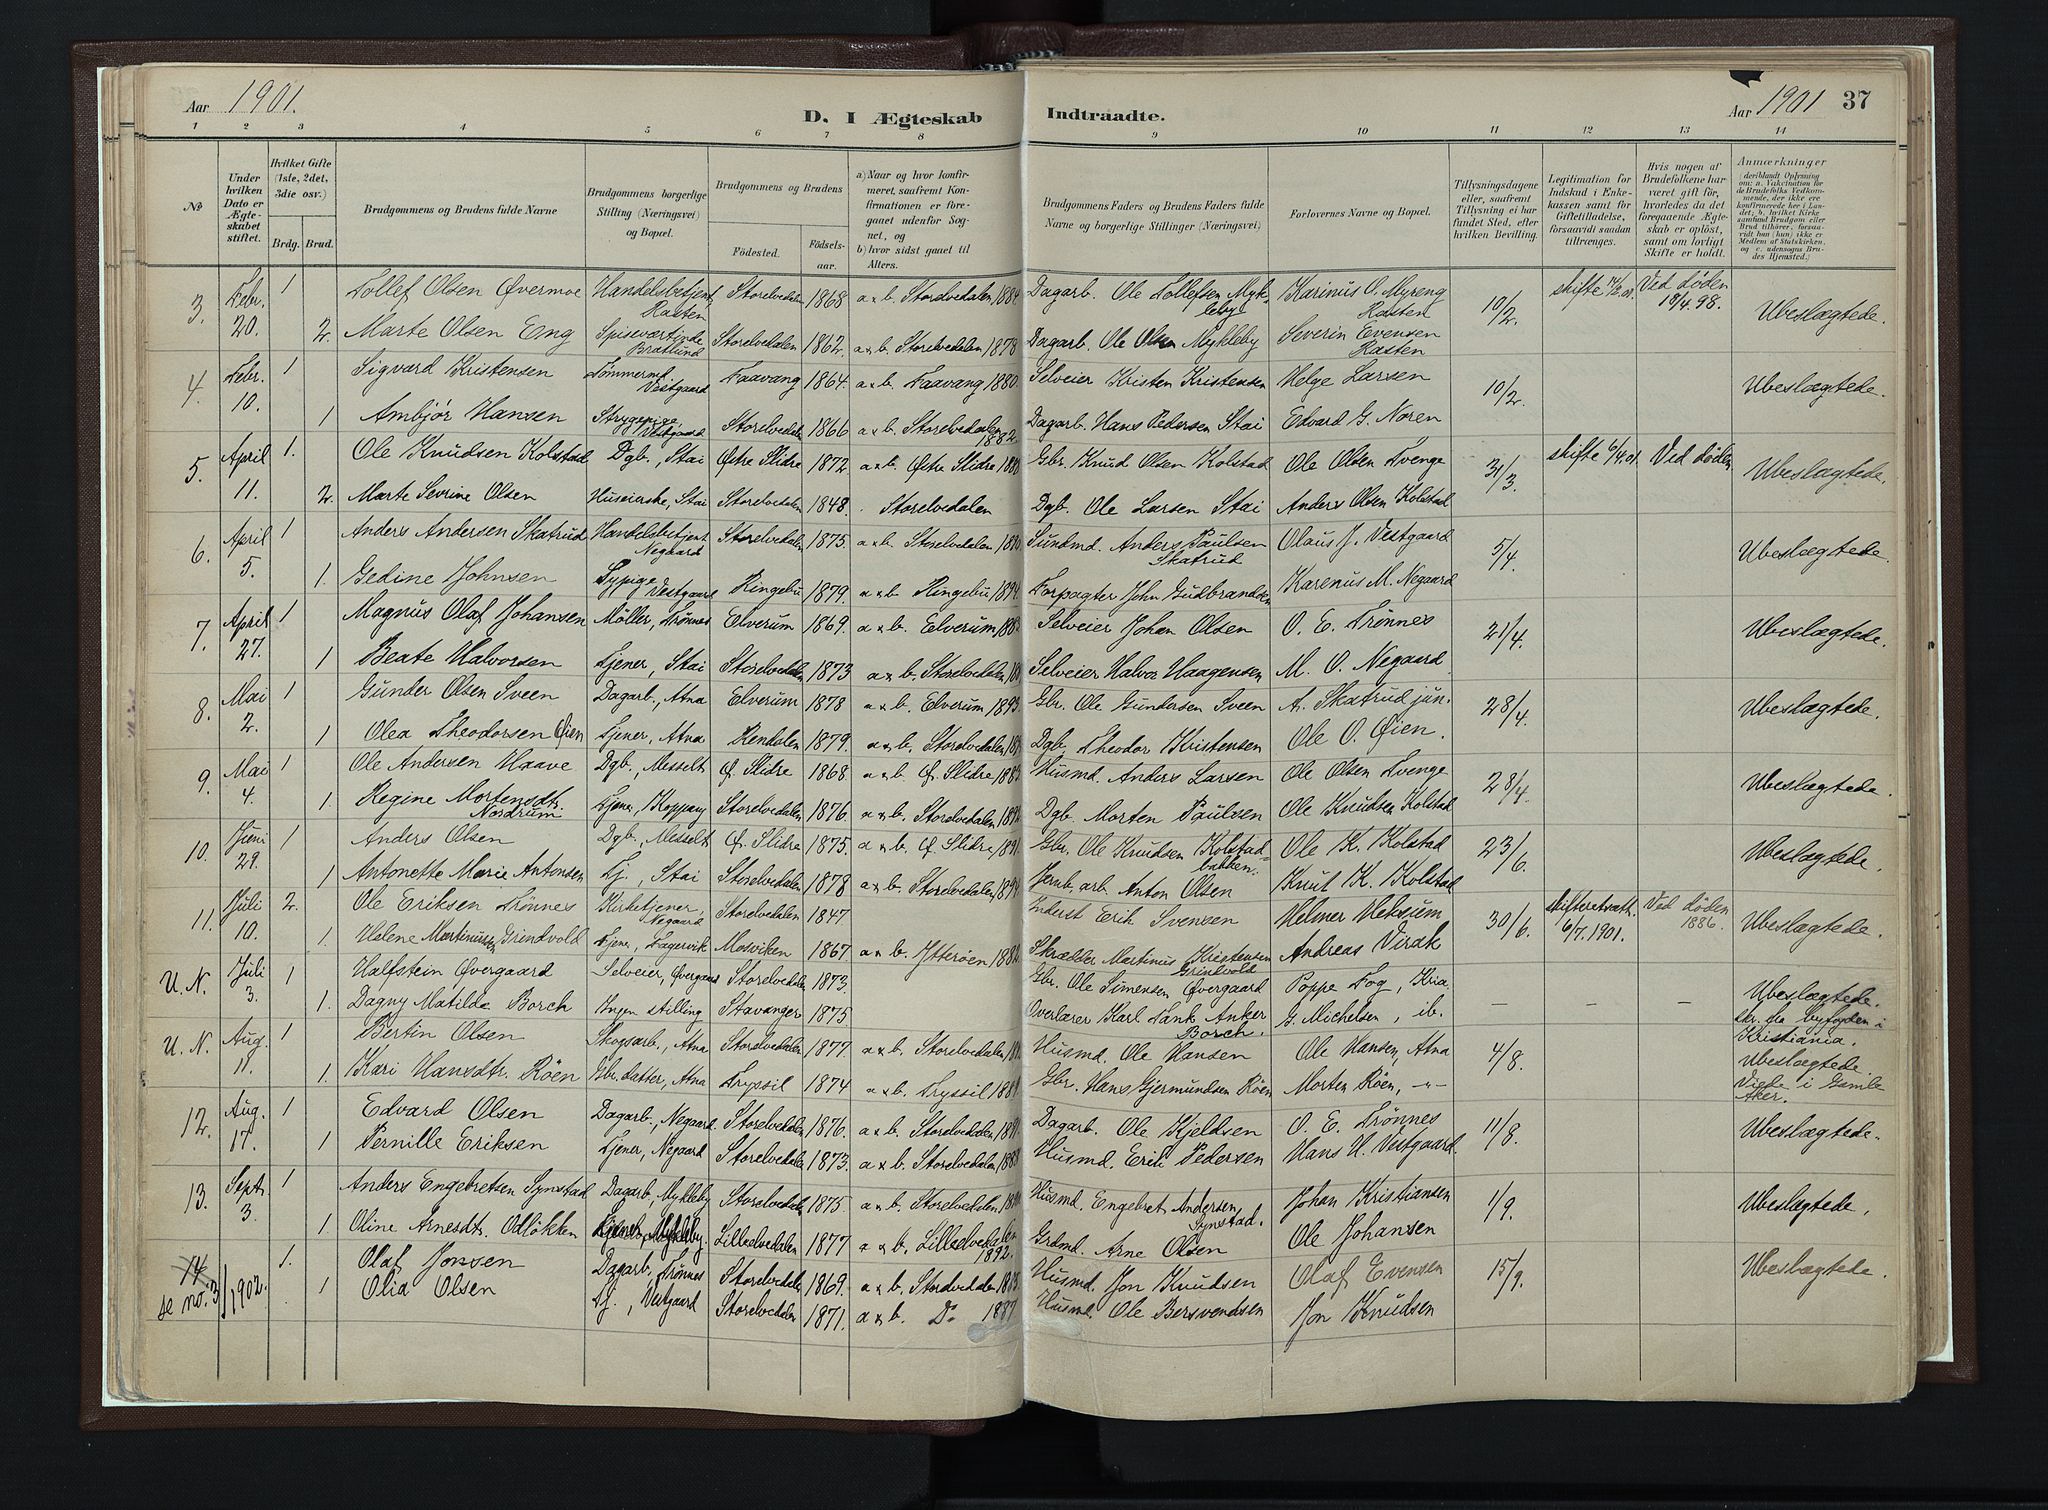 Aar 1901.
D. I Ægteskab Indtraadte.
Aar 1901 37
1 2 3 4 5 6 7 8 9 10 11 12 13 14
№
Under hvilken Dato er Ægteskabet stiftet.
Hvilket Gifte (1ste, 2det, 3die osv.)
Brdg. Brud.
Brudgommens og Brudens fulde Navne
Brudgommens borgerlige Stilling (Næringsvei) og Bopæl.
Brudgommens og Brudens
Fødested. Fødselsaar.
a) Naar og hvor konfirmeret, saafremt Konfirmationen er foregaaet udenfor Sognet, og
b) hvor sidst gaaet til Alters.
Brudgommens Faders og Brudens Faders fulde Navne og borgerlige Stillinger (Næringsvei)
Forlovernes Navne og Bopæl.
Tillysningsdagene eller, saafremt Tillysning ei har fundet Sted, efter hvilken Bevilling.
Legitimation for Indskud i Enkekassen samt for Giftetilladelse, forsaavidt saadan tiltrænges.
Hvis nogen af Brudefolkene har været gift før, hvorledes da det foregaaende Ægteskab er opløst, samt om lovligt Skifte er holdt.
Anmærkninger (deriblandt Oplysning om: a. Vakcination for de Brudefolks Vedkommende, der ikke ere konfirmerede her i Landet; b. hvilket Kirkesamfund Brudgom eller Brud tilhører, forsaavidt han (hun) ikke er Medlem af Statskirken, og c. udensogns Brudes Hjemsted.)
3. Febr. 20. 1 Tollef Olsen Øvermoe Handelsbetjent Hasten Storelvedalen 1868 a&b. Storelvedalen 1884 Dagarb. Ole Tollefsen Mykleby Karinus O. Myreng Hasten 10/2. skifte Ved døden 18/4.98. Ubeslægtede.
2. Marte Olsen Eng Spiseværtinde Bratlund Storelvedalen 1862. a&b. Storelvedalen 1878 Dagarb. Ole Olsen Mykleby Severin Evensen Hasten
4. Febr. 10. 1 Sigvard Kristensen Tømmermd. Vestgaard Faavang 1864. a&b. Faavang 1880. Selveier Kristen Kristensen Helge Larsen 10/2. Ubeslægtede.
1 Ambjør Hansen Strygepige, Vestgaard Storelvedalen 1866 a&b. Storelvedalen 1882. Dagarb. Hans Pedersen Stai Edvard G. Noren
5. April 11. 1. Ole Knudsen Kolstad Dgb., Stai Østre Slidre 1872 a&b. Østre Slidre Gbr. Knud Olsen Kolstad Ole Olsen Tvenge 31/3. skifte 6/4.01. Ved døden Ubeslægtede.
2. Marte Sevrine Olsen Huseierske, Stai Storelvedalen 1848. Storelvedalen Dgb. Ole Larsen Stai Anders Olsen Kolstad
6. April 5. 1 Anders Andersen Skatrud Handelsbetjent Negaard Storelvedalen 1875. a&b. Storelvedalen Sundmd. Anders Paulsen Skatrud Olaus J. Vestgaard 5/4. Ubeslægtede.
1. Gedine Johnsen Sypige Vestgaard Ringebu 1879. a&b. Ringebu 1894 Forpagter John Gudbrandsen Karenus M. Negaard
7. April 27. 1 Magnus Olaf Johansen Møller, Trønnes Elverum 1869. a&b. Elverum Selveier Johan Olsen O. E. Trønnes 21/4. Ubeslægtede.
1 Beate Halvorsen Tjener, Stai Storelvedalen 1873 a&b. Storelvedalen Selveier Halvor Haagensen M. O. Negaard
8. Mai 2. 1 Gunder Olsen Sveen Dagarb., Atna Elverum 1878 a&b. Elverum 1893. Gbr. Ole Gundersen Sveen A. Skatrud jun. 28/4. Ubeslægtede.
1 Olea Theodorsen Øien Tjener, Atna Rendalen 1879. a&b. Storelvedalen Dgb. Theodor Kristensen Ole O. Øien.
9. Mai 4. 1 Ole Andersen Haave Dgb., Messelt Ø. Slidre 1868 a&b. Ø. Slidre Husmd. Anders Larsen Ole Olsen Tvenge 28/4. Ubeslægtede.
1. Regine Mortensdtr. Nordrum Tjener, Koppang Storelvedalen 1876. a&b. Storelvedalen Dgb. Morten Paulsen Ole Knudsen Kolstad
10. Juni 29. 1 Anders Olsen Dgb., Messelt Ø. Slidre 1875. a&b. Ø. Slidre 1891. Gbr. Ole Knudsen Kolstadbakken. Ole K. Kolstad 23/6. Ubeslægtede.
1 Antonette Marie Antonsen Tj., Stai Storelvedalen 1878 a&b. Storelvedalen 1894 Jernb. arb. Anton Olsen Knut K. Kolstad
11. Juli 10. 2. Ole Eriksen Trønnes Kirketjener, Negaard Storelvedalen 1847 Inderst Erik Svensen Helmer Heksum 30/6. skifteretsatt. 6/7.1901. Ved døden 1886. Ubeslægtede.
1. Helene Martinusen Grindvold Tjener, Fagervik Mosviken 1867 a&b. Ytterøen 1882 Skrædder Martinus Kristensen Grindvold Andreas Virak
U. N. Juli 3. 1 Halfstein Øvergaard Selveier, Øvergaard Storelvedalen 1873. Gbr. Ole Simensen Øvergaard Poppe Fog, Kria. – – – Ubeslægtede. skr. fra byfogden i Kristiania.
1. Dagny Matilda Borch Ingen stilling Stavanger 1875 Overlærer Karl Tank Anker Borch. G. Michelsen, ib.
U. N. Aug. 11. 1 Bertin Olsen Skogsarb., Atna Storelvedalen 1877. a&b. Storelvedalen Husmd. Ole Hansen Ole Hansen, Atna 4/8. Ubeslægtede. Viede i Gamle Aker.
1. Kari Hansdtr. Røen Gbr. datter, Atna Trysil 1874 a&b. Tryssil Gbr. Hans Gjermundsen Røen Morten Røen, –"–
12. Aug. 17. 1 Edvard Olsen Dagarb., Negaard Storelvedalen 1876. a&b. Storelvedalen Dagarb. Ole Kjeldsen O. E. Trønnes 11/8. Ubeslægtede.
1 Pernille Eriksen Tjener, Negaard Storelvedalen 1873. a&b. Storelvedalen 1888 Husmd. Erik Pedersen Hans H. Vestgaard
13. Sept. 3. 1 Anders Engebretsen Synstad Dagarb., Mykleby Storelvedalen 1875. a&b. Storelvedalen Husmd. Engebret Andersen Synstad. Johan Kristiansen 1/9. Ubeslægtede.
1. Oline Arnesdtr. Odløkken Mykleby. Lilleelvedalen 1877 a&b. Lilleelvedalen 1892. Grdmd. Arne Olsen Ole Johansen
14 se no. 3/1902. 1. Olaf Jonsen Dagarb., Trønnes Storelvedalen 1869. a&b. Storelvedalen Husmd. Jon Knudsen Olaf Evensen 15/9. Ubeslægtede.
1 Olia Olsen Tj., Vestgaard Storelvedalen 1871. a&b. Do 1887 Husmd. Ole Bersvendsen Jon Knudsen